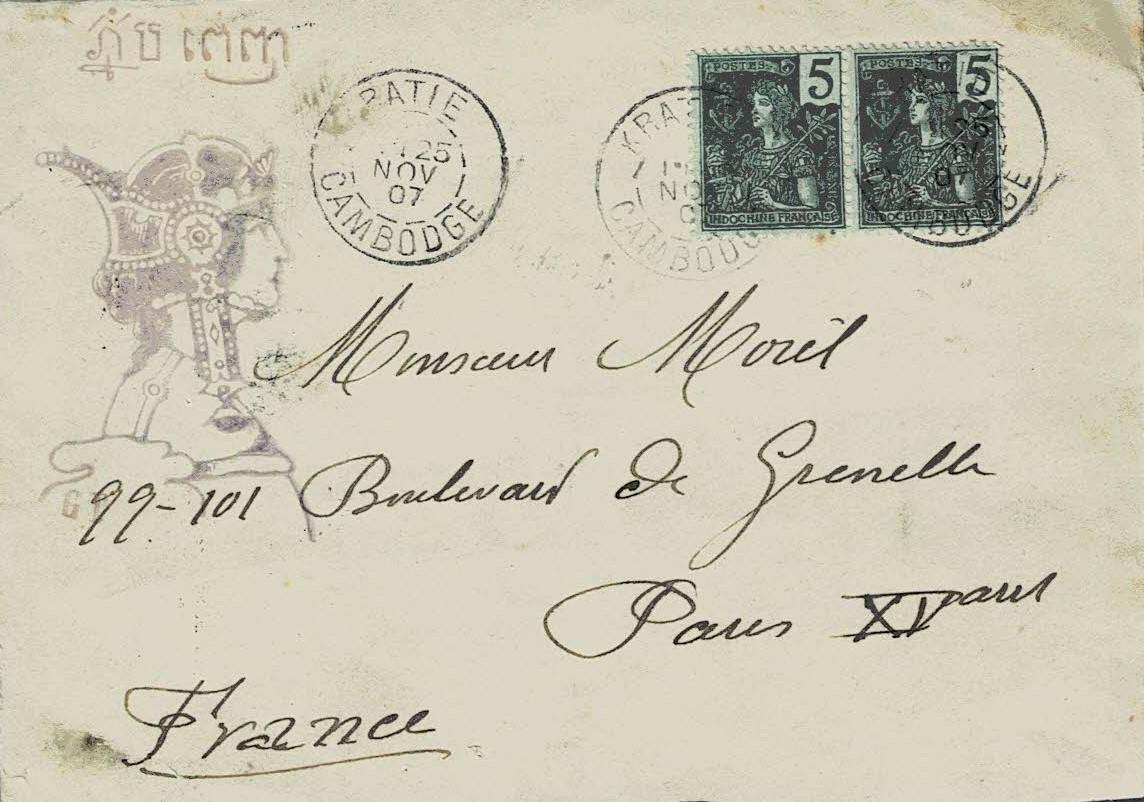 ភ្នំប ពេញ
KRATIE
25
NOV
07
CAMBODGE
KRAT
NO
CAMBODG
POSTES
5
INDOCHINE FRANÇAISE
POSTES
5
INDOCHINE FRANÇAISE
25
07
BODGE
Monsieur Morel
99-101 Boulevard de Grenelle
Paris XV
France